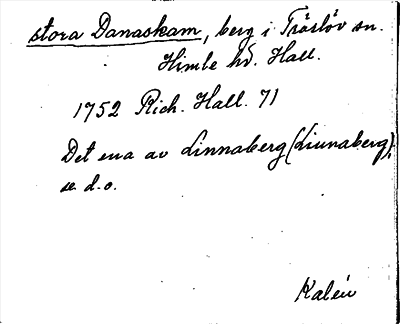 stora Danaskam, berg i Träslöv sn.
Himle hd. Hall.
1752 Rich. Hall. 71
Det ena av Linnaberg (Liunaberg),
se d.o.
Kalén